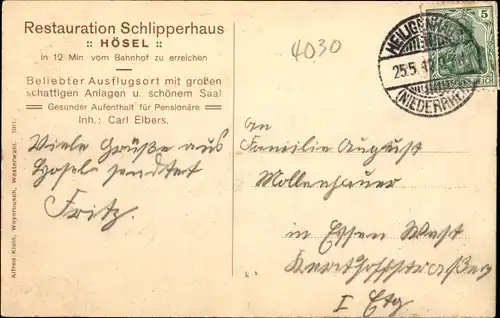 Restauration Schlipperhaus
:: HÖSEL ::
In 12 Min. vom Bahnhof zu erreichen
Beliebter Ausflugsort mit großen
schattigen Anlagen u. schönem Saal
Gesunder Aufenthalt für Pensionäre
Inh.: Carl Elbers.
Viele Grüße aus
Hösel sendtet
Fritz.
Alfred Klein, Weyerbusch, Westerwald.
4030
HEILIGENHAUS
25.5.
(NIEDERRHEIN)
5
An
Familie August
Mollenhauer
in Essen West
I Etg.